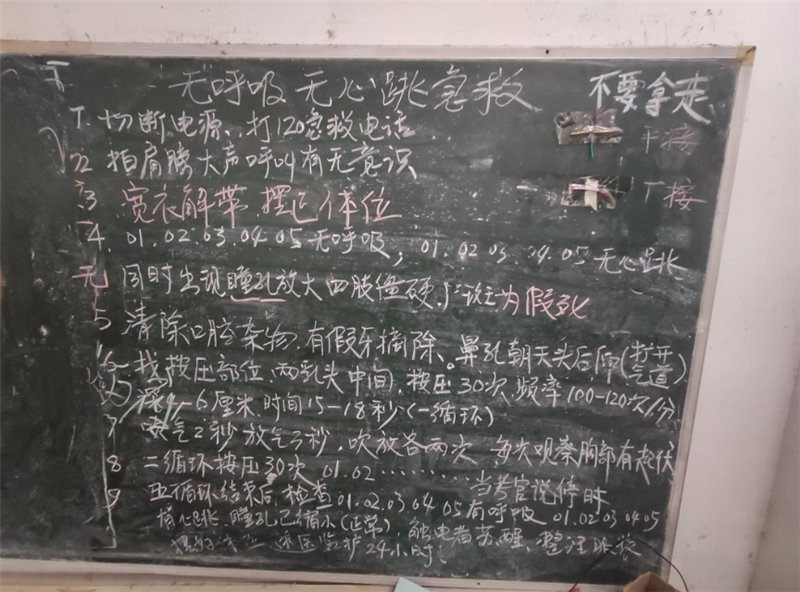 无呼吸 无心跳急救
不要拿走
1. 切断电源、打120急救电话
干接
2 拍肩膀大声呼叫有无意识
3 宽衣解带 摆正体位
接
4. 01.02.03.04.05无呼吸, 01.02.03.04.05无心跳
无 同时出现瞳孔放大四肢僵硬, 为假死
5 清除口腔杂物, 有假牙摘除。鼻孔朝天头后仰(打开气道)
6 找按压部位, 两乳头中间, 按压30次, 频率100-120次/分
4-6厘米, 时间15-18秒(一循环)
7 吹气2秒放气3秒, 吹放各两次 每次观察胸部有起伏
8 二循环按压30次 01.02………… 当考官说停时
9 五循环结束后 检查01.02.03 04 05有呼吸 01.02 03 04 05
心跳, 瞳孔已缩小(正常), 触电者苏醒, 整理服装
送医监护24小时!